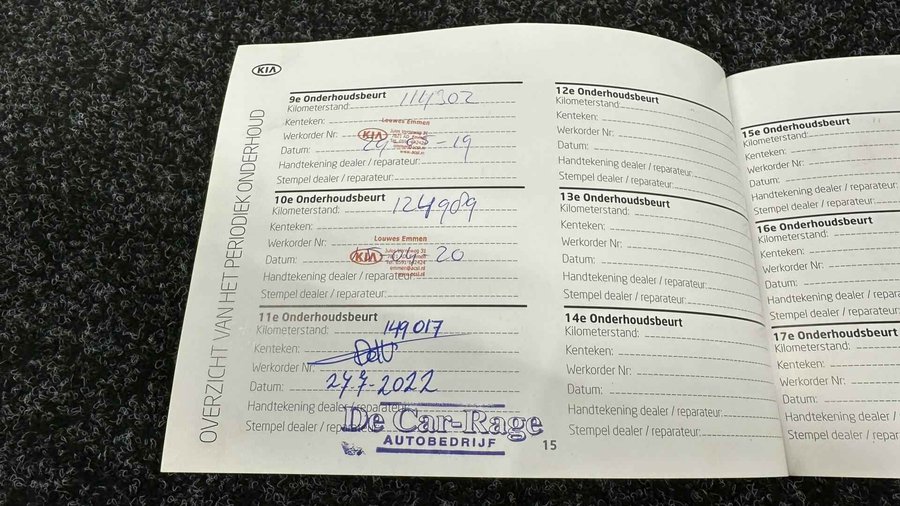 KIA
OVERZICHT VAN HET PERIODIEK ONDERHOUD
9e Onderhoudsbeurt
Kilometerstand: 114302
Kenteken:
Werkorder Nr:
Datum: 29 -19
Handtekening dealer / reparateur:
Stempel dealer / reparateur:
Louwes Emmen
KIA
10e Onderhoudsbeurt
Kilometerstand: 124989
Kenteken:
Werkorder Nr:
Datum: 04 20
Handtekening dealer / reparateur:
Stempel dealer / reparateur:
Louwes Emmen
KIA
11e Onderhoudsbeurt
Kilometerstand: 149017
Kenteken:
Werkorder Nr:
Datum: 27-7-2022
Handtekening dealer / reparateur:
Stempel dealer / reparateur:
De Car-Rage
AUTOBEDRIJF
15
12e Onderhoudsbeurt
Kilometerstand:
Kenteken:
Werkorder Nr:
Datum:
Handtekening dealer / reparateur:
Stempel dealer / reparateur:
13e Onderhoudsbeurt
Kilometerstand:
Kenteken:
Werkorder Nr:
Datum:
Handtekening dealer / reparateur:
Stempel dealer / reparateur:
14e Onderhoudsbeurt
Kilometerstand:
Kenteken:
Werkorder Nr:
Datum:
Handtekening dealer / reparateur:
Stempel dealer / reparateur:
15e Onderhoudsbeurt
Kilometerstand:
Kenteken:
Werkorder Nr:
Datum:
Handtekening dealer / reparateur:
Stempel dealer / reparateur:
16e Onderhoudsbeurt
Kilometerstand:
Kenteken:
Werkorder Nr:
Datum:
Handtekening dealer / reparateur:
Stempel dealer / reparateur:
17e Onderhoudsbeurt
Kilometerstand:
Kenteken:
Werkorder Nr:
Datum:
Handtekening dealer / reparateur:
Stempel dealer / reparateur: